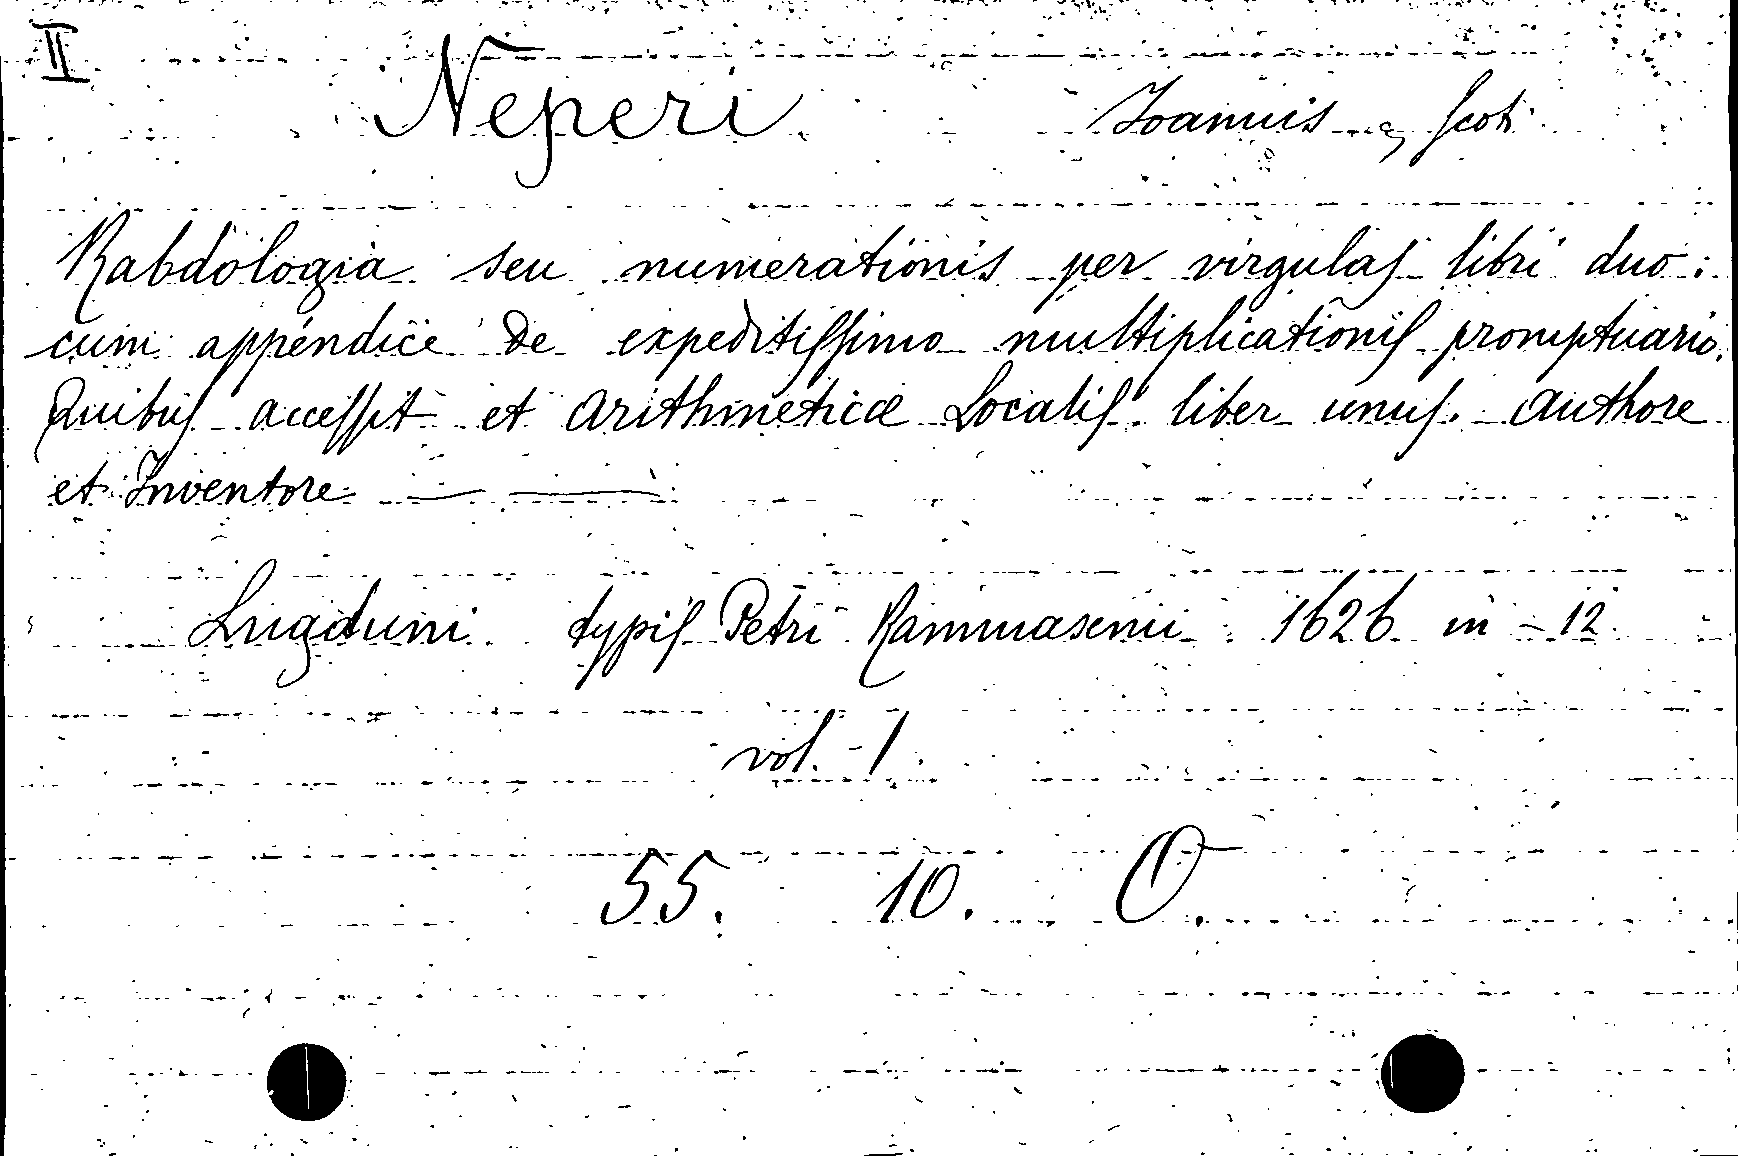 II
Neperi Joannis, Scoti
Rabdologia seu numerationis per virgulas libri duo:
cum appendice de expeditissimo multiplicationis promptuario.
Quibus accessit et arithmeticæ Localis liber unus. Authore
et Inventore
Lugduni typis Petri Rammasenii 1626 in-12
vol. 1
55. 10. O.